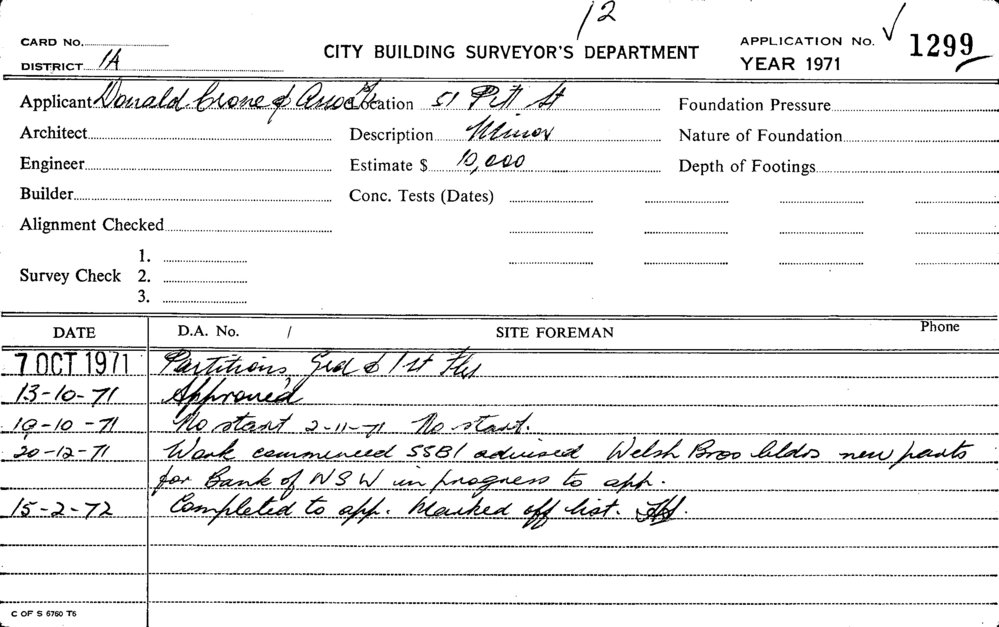 12
CARD No.
CITY BUILDING SURVEYOR'S DEPARTMENT
APPLICATION No. ✓ 1299
DISTRICT 1A
YEAR 1971
Applicant Donald Crone & Assoc Location 51 Pitt St Foundation Pressure
Architect Description Minor Nature of Foundation
Engineer Estimate $ 10,000 Depth of Footings
Builder Conc. Tests (Dates)
Alignment Checked
1.
Survey Check 2.
3.
DATE D.A. No. / SITE FOREMAN Phone
7 OCT 1971 Partitions Grd & 1st Fls
13-10-71 Approved
19-10-71 No start 2-11-71 No start.
20-12-71 Work commenced SSBI advised Welsh Bros bldrs new parts
for Bank of NSW in progress to app.
15-2-72 Completed to app. Marked off list.
C OF S 6760 T6